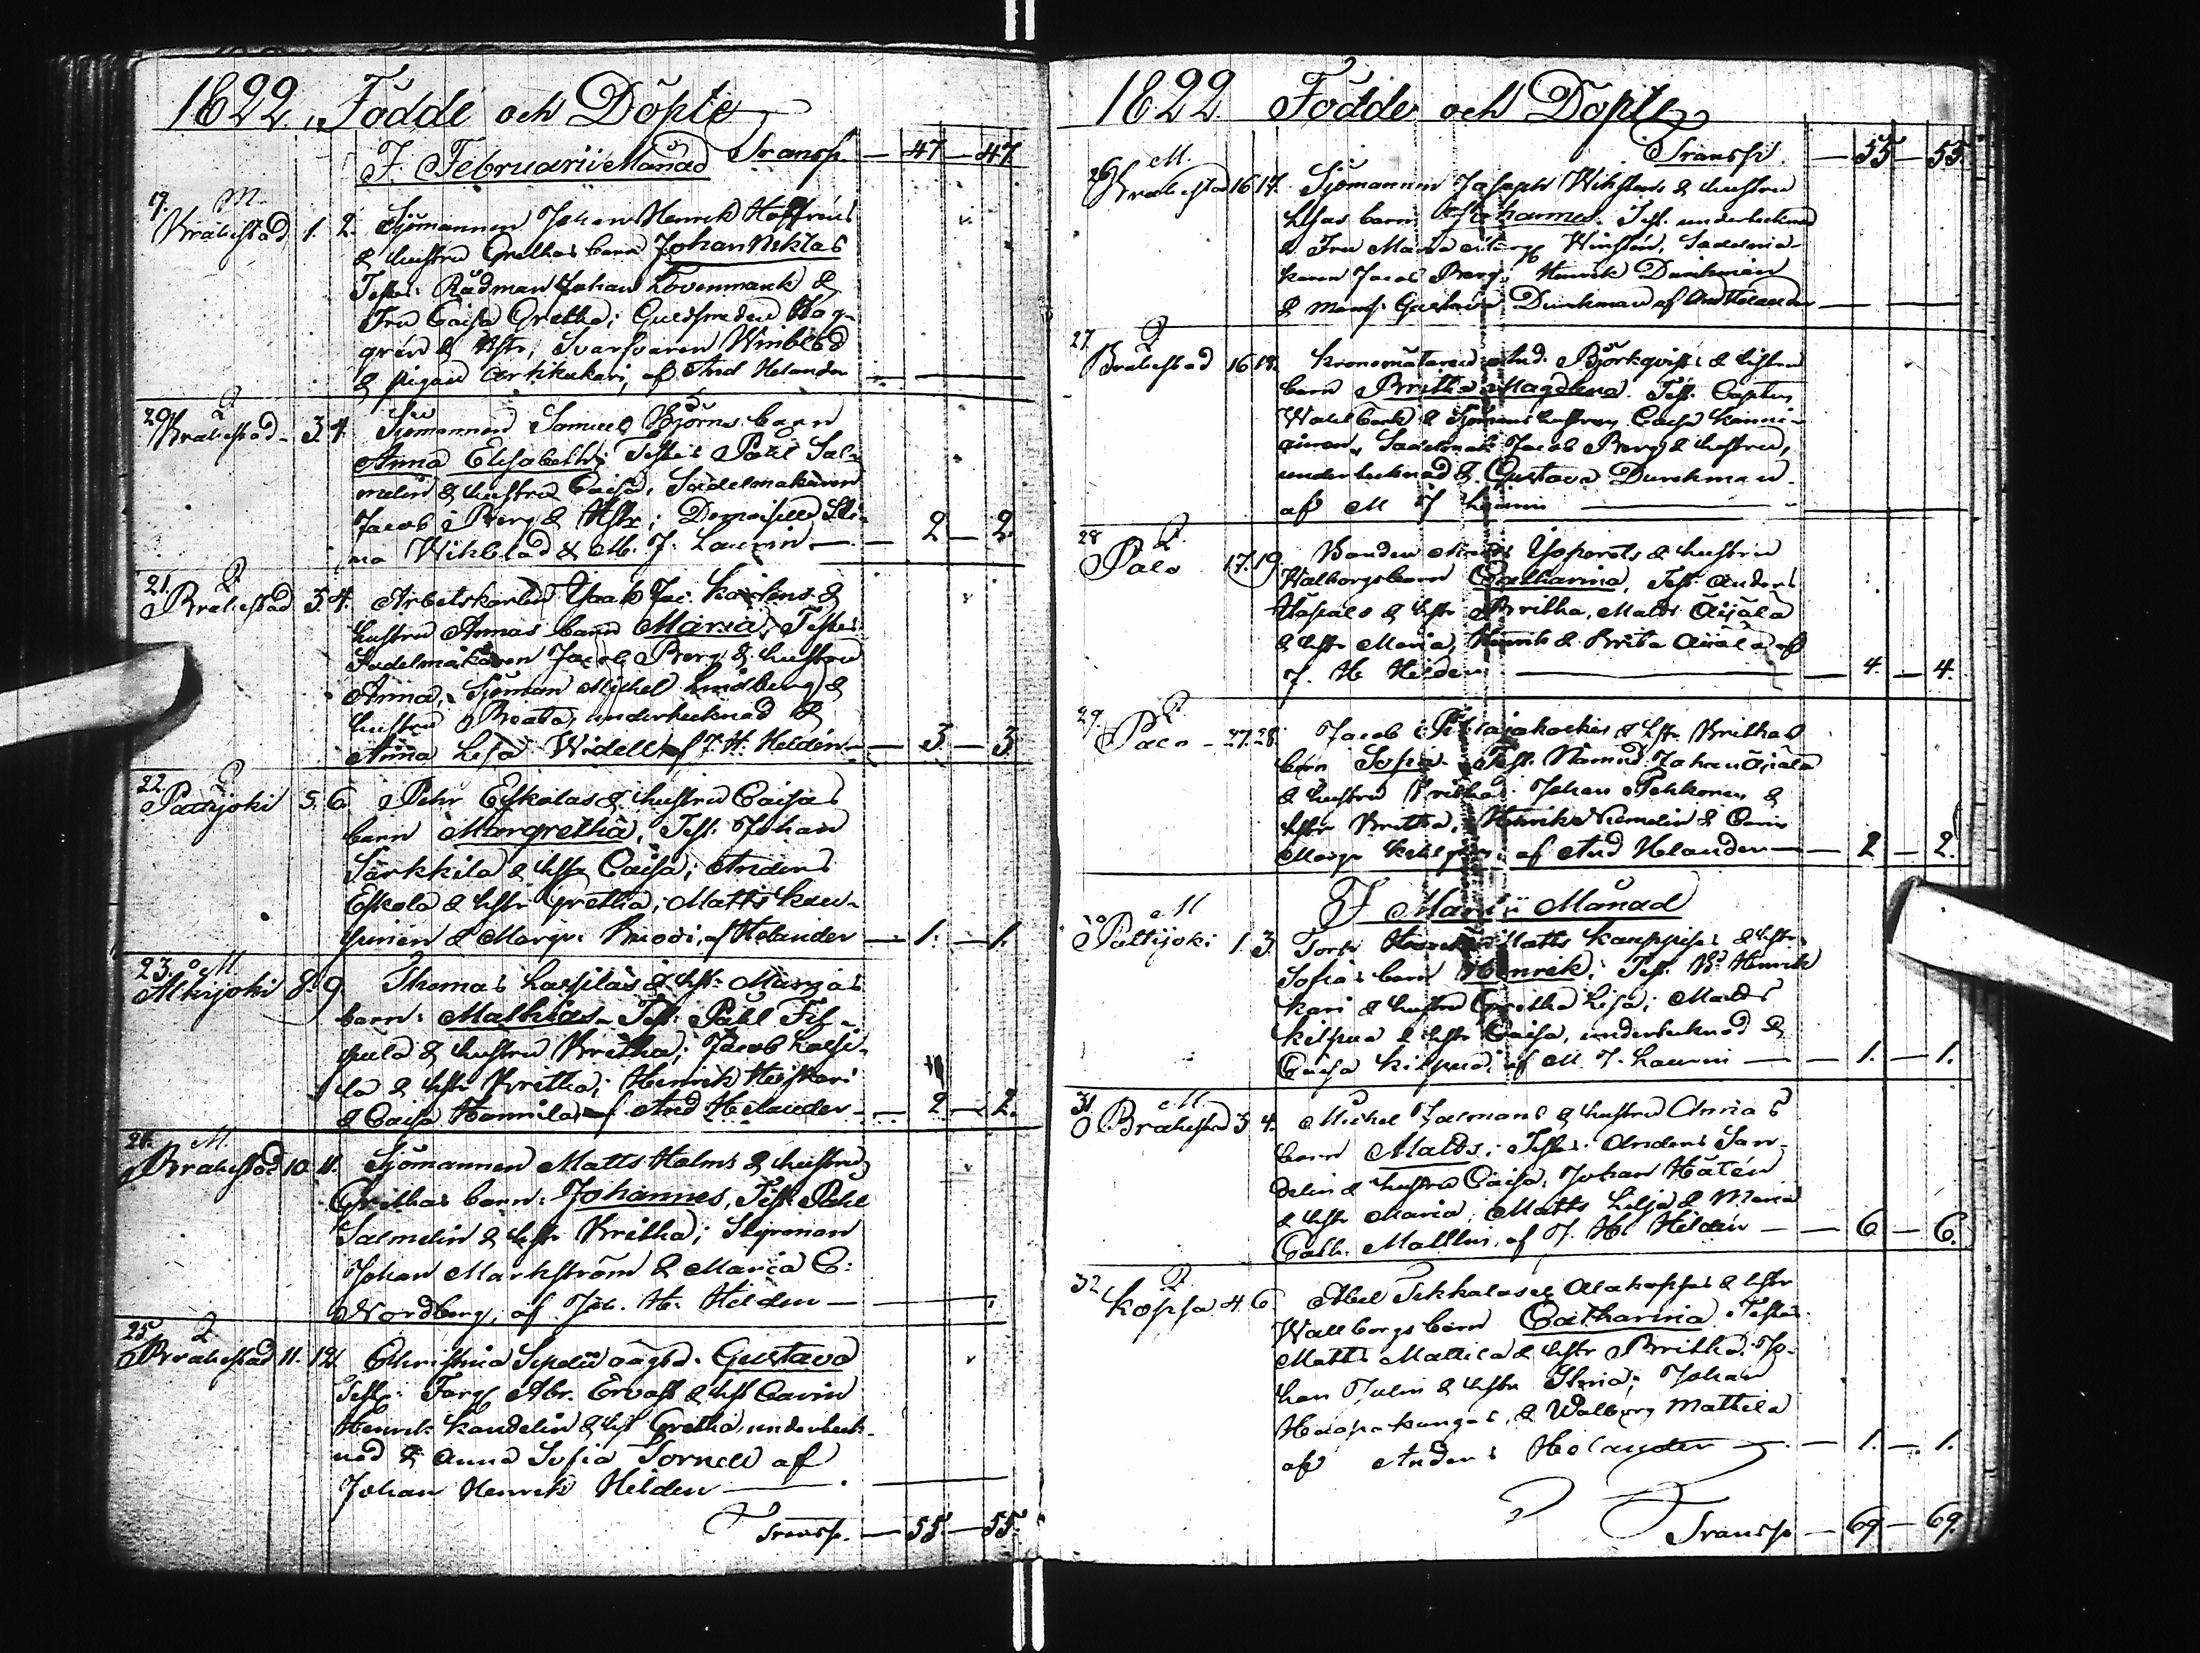 1822. Födde och Döpte
I Februarii Månad Transp. — 47 — 47
19. M.
Brahestad 1. 2. Sjömannen Johan Henrik Hoffréns
& hustru Grethas barn Johan Niklas
Testes: Rådman Johan Lövenmark &
Fru Caisa Gretha; Guldsmeden Hag-
grén & Hstr; Svarfvaren Winblad
& pigan af And Helander
20. Q
Brahestad 3. 4. Sjömannen Samuel Björns barn
Anna Elisabeth; Testes Påhl Sal-
melin & hustru Caisa, Sadelmakaren
Jacob Berg & Hstr; Demoiselle Sti-
na Wikblad & M. J. Laurin — 2 — 2.
21. Q
Brahestad 3. 4. Arbetskarlen Isaak Jac.
hustru Annas barn Maria, Testes
Sadelmakaren Jacob Berg & hustru
Anna, Sjöman Michel Lindberg &
hustru Beata, undertecknad &
Anna Lisa Widell af J. H. Heldén — 3 — 3
22. Q
Pattijoki 5. 6. Pehr Eskolas & hustru Caisas
barn Margretha, Test. Johan
Särkkilä & hstr Caisa; Anders
Eskola & hstr Gretha; Matts
& Margr. af Helander — 1. — 1.
23. M
Alkijoki 8. 9. Thomas Lassilas & hstr Margas
barn: Mathias. Test: Påhl
& hustru Britha; Jacob Lassi-
la & hstr Britha; Henrik Heiskari
& Caisa Hannila af And Helander — 2 — 2.
24. M.
Brahestad 10. 11. Sjömannen Matts Holms & hustru
Grethas barn: Johannes, Test Påhl
Salmelin & hstr Britha; Styrman
Johan Markström & Maria C:
Nordberg, af Joh. H. Heldén —
25. Q
Brahestad 11. 12. Christina oägta. Gustava
Test: Färg. Abr. Ervast & hst Carin
Henrik Kandelin & hst Gretha, underteck-
nad & Anna Sofia Tornell af
Johan Henrik Heldén —
Transp. — 55 — 55.
1822. Födde och Döpte
Transp. — 55 — 55.
26. M.
Brahestad 16 17. Sjömannen Joseph & hustru
Lisas barn Johannes. Test. undertecknad
& Fru Maria Winstén, Sadelma-
karen Jacob Berg; Henrik Dunckman
& Mams. Gustava Dunckman af And Helander
27. Q
Brahestad 16 18. Kronomätaren And. Björkqvists & hstrus
barn Britha Magdlena. Test. Capten
& Sjömans hustrun Caisa
Sadelmak. Jacob Berg & hustru,
undertecknad & Gustava Dunckman
af M J Laurin —
28 Q
Palo 17. 19. Bonden & hustru
Walborgs barn Catharina, Test. Anders
Haapalo & hstr Britha, Matts Äijälä
& hstr Maria, Henrik & Brita Äijälä af
J. H. Helden — 4. — 4.
29. Q
Palo 27. 28. Jacob & hstr Brithas
barn Sofia. Test. Nämnd. Johan Äijälä
& hustru Britha; Johan Pehkonen &
hstr Britha; Henrik Niemelin & Carin
Margr. af And Helander — 2 — 2.
I Martii Månad
30 M
Pattijoki 1. 3 Torp. Henrik Matts Kauppises & hstr
Sofias barn Henrik; Test. Henrik
Kari & hustru Gretha Lisa; Matts
Kilpua & hstr Caisa, undertecknad &
Caisa Kilpua, af M. J. Laurin — 1. — 1.
31. M.
Brahestad 3 4. Michel Salmans & hustru Annas
barn Matts; Testes: Anders San-
delin & hustru Caisa, Johan Hatén
& hstr Maria, Matts Lilja & Maria
Cath. af J. H. Heldén — 6 — 6.
32. Q
Kopsa 4. 6. Abel Alakopsas & hstr
Wallborgs barn Catharina, Testes:
Matts Mattila & hstr Britha, Jo-
han Julin & hstr Stina; Johan
Haapakangas, & Walborg Mattila
af Anders Helander — 1. — 1.
Transp — 69 — 69.